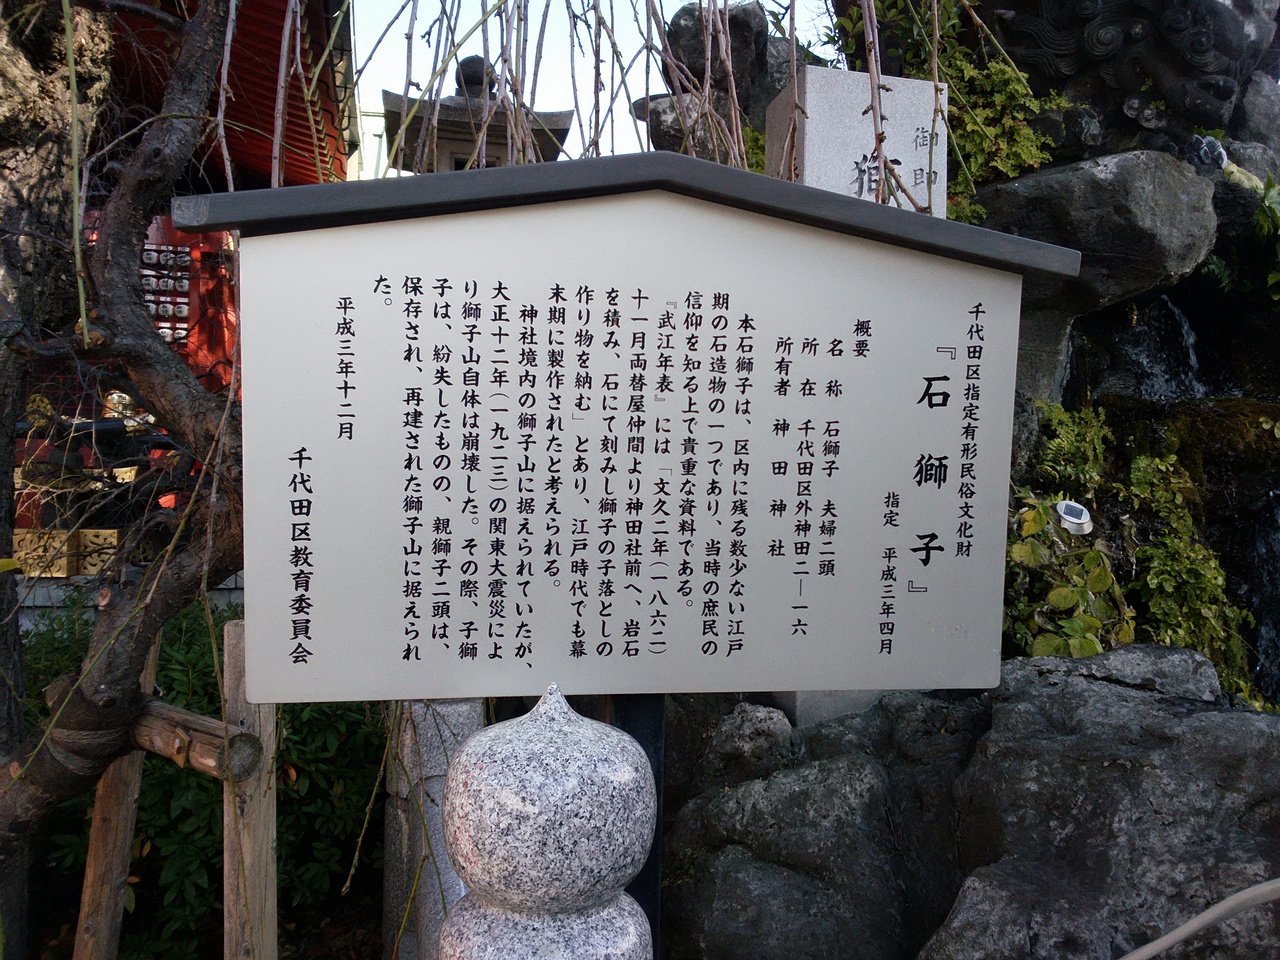 千代田区指定有形民俗文化財
『石獅子』
指定　平成三年四月
概要
名　称　石獅子　夫婦二頭
所　在　千代田区外神田二―一六
所有者　神　田　神　社
本石獅子は、区内に残る数少ない江戸
期の石造物の一つであり、当時の庶民の
信仰を知る上で貴重な資料である。
『武江年表』には「文久二年(一八六二)
十一月両替屋仲間より神田社前へ、岩石
を積み、石にて刻みし獅子の子落としの
作り物を納む」とあり、江戸時代でも幕
末期に製作されたと考えられる。
神社境内の獅子山に据えられていたが、
大正十二年(一九二三)の関東大震災によ
り獅子山自体は崩壊した。その際、子獅
子は、紛失したものの、親獅子二頭は、
保存され、再建された獅子山に据えられ
た。
平成三年十二月
千代田区教育委員会
御即